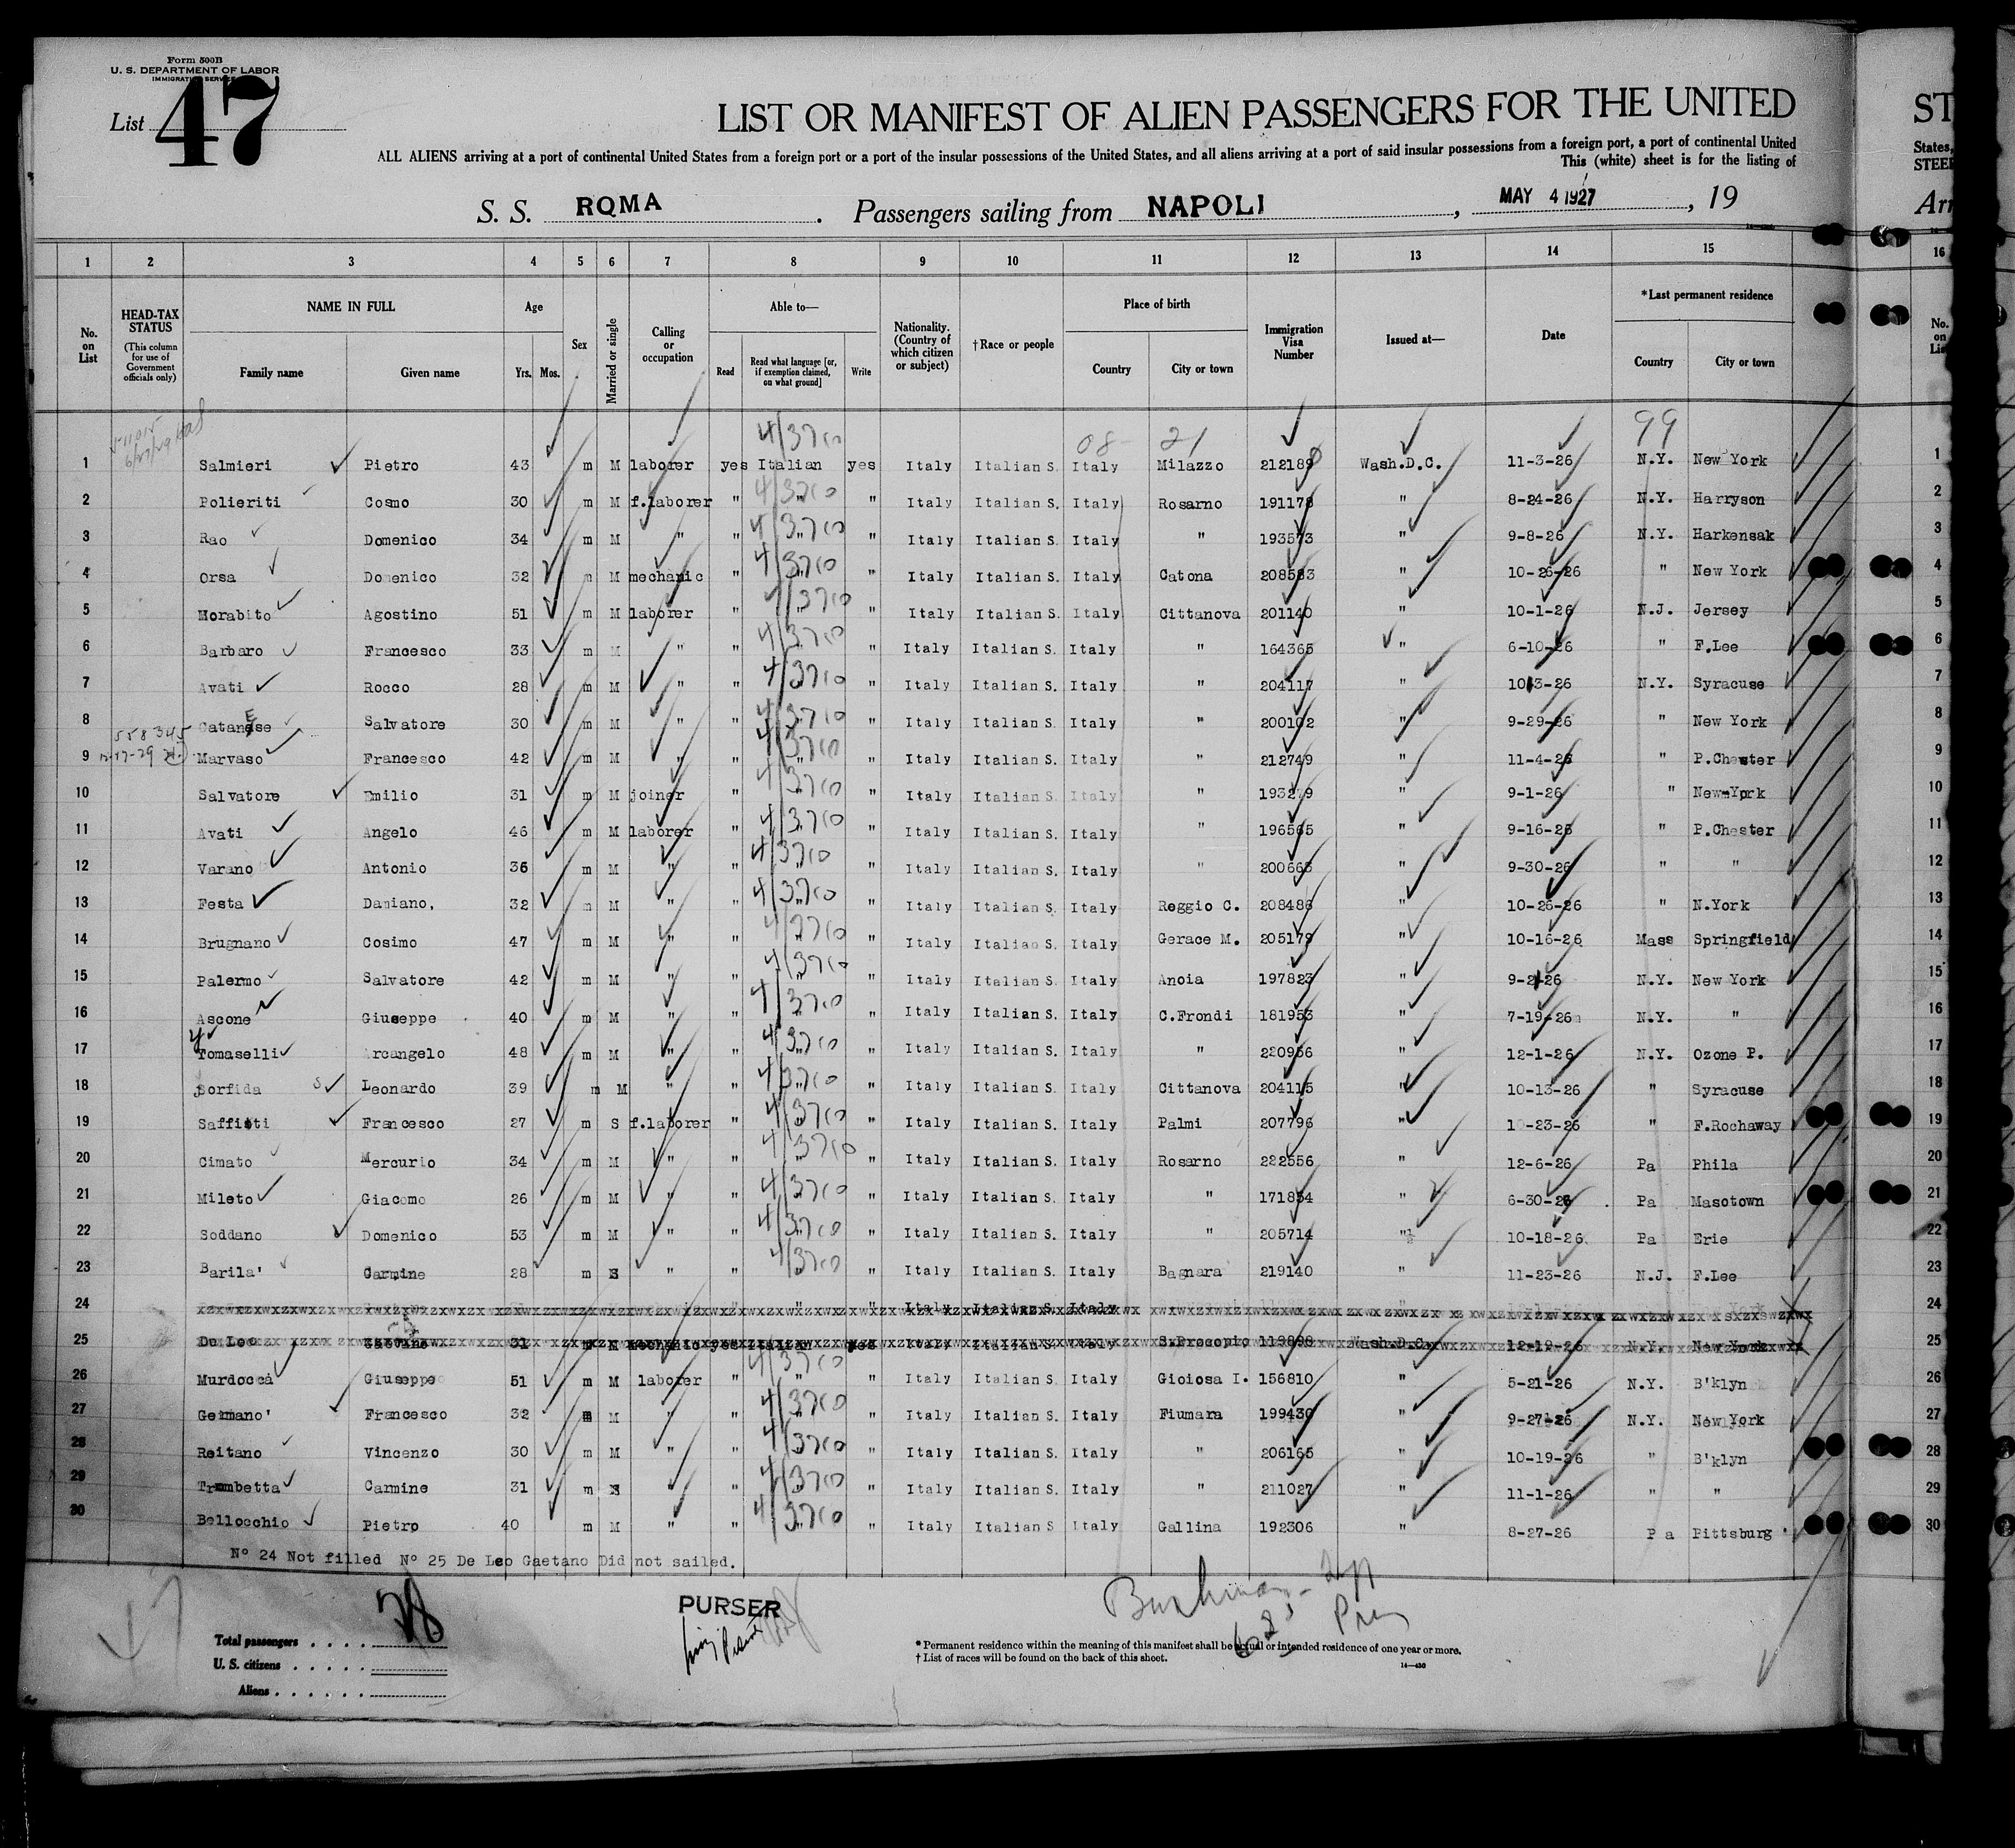 Form 500B
U. S. DEPARTMENT OF LABOR
IMMIGRATION SERVICE
List 47
LIST OR MANIFEST OF ALIEN PASSENGERS FOR THE UNITED
ST
ALL ALIENS arriving at a port of continental United States from a foreign port or a port of the insular possessions of the United States, and all aliens arriving at a port of said insular possessions from a foreign port, a port of continental United
States,
This (white) sheet is for the listing of
STEE
S. S. ROMA . Passengers sailing from NAPOLI , MAY 4 1927 , 19
Arr
1 2 3 4 5 6 7 8 9 10 11 12 13 14 15 16
No. on List
HEAD-TAX STATUS (This column for use of Government officials only)
NAME IN FULL Family name Given name
Age Yrs. Mos.
Sex
Married or single
Calling or occupation
Able to— Read Read what language [or, if exemption claimed, on what ground] Write
Nationality. (Country of which citizen or subject)
†Race or people
Place of birth Country City or town
Immigration Visa Number
Issued at—
Date
*Last permanent residence Country City or town
No. on List
08 21 99
1 Salmieri Pietro 43 m M laborer yes Italian yes Italy Italian S. Italy Milazzo 212189 Wash.D.C. 11-3-26 N.Y. New York 1
2 Polieriti Cosmo 30 m M f.laborer " " " Italy Italian S. Italy Rosarno 191178 " 8-24-26 N.Y. Harryson 2
3 Rao Domenico 34 m M " " " " Italy Italian S. Italy " 193573 " 9-8-26 N.Y. Harkensak 3
4 Orsa Domenico 32 m M mechanic " " " Italy Italian S. Italy Catona 208583 " 10-26-26 " New York 4
5 Morabito Agostino 51 m M laborer " " " Italy Italian S. Italy Cittanova 201140 " 10-1-26 N.J. Jersey 5
6 Barbaro Francesco 33 m M " " " " Italy Italian S. Italy " 164365 " 6-10-26 " F.Lee 6
7 Avati Rocco 28 m M " " " " Italy Italian S. Italy " 204117 " 1013-26 N.Y. Syracuse 7
8 Catanese Salvatore 30 m M " " " " Italy Italian S. Italy " 200102 " 9-29-26 " New York 8
558345
9 Marvaso Francesco 42 m M " " " " Italy Italian S. Italy " 212749 " 11-4-26 " P.Chester 9
10 Salvatore Emilio 31 m M joiner " " " Italy Italian S. Italy " 193279 " 9-1-26 " New-York 10
11 Avati Angelo 46 m M laborer " " " Italy Italian S. Italy " 196565 " 9-16-26 " P.Chester 11
12 Varano Antonio 36 m M " " " " Italy Italian S. Italy " 200663 " 9-30-26 " " 12
13 Festa Damiano, 32 m M " " " " Italy Italian S. Italy Reggio C. 208486 " 10-26-26 " N.York 13
14 Brugnano Cosimo 47 m M " " " " Italy Italian S. Italy Gerace M. 205179 " 10-16-26 Mass Springfield 14
15 Palermo Salvatore 42 m M " " " " Italy Italian S. Italy Anoia 197823 " 9-21-26 N.Y. New York 15
16 Ascone Giuseppe 40 m M " " " " Italy Italian S. Italy C.Frondi 181953 " 7-19-26 N.Y. " 16
17 Tomaselli Arcangelo 48 m M " " " " Italy Italian S. Italy " 220966 " 12-1-26 N.Y. Ozone P. 17
18 Sorfida Leonardo 39 m M " " " " Italy Italian S. Italy Cittanova 204115 " 10-13-26 " Syracuse 18
19 Saffioti Francesco 27 m S f.laborer " " " Italy Italian S. Italy Palmi 207796 " 10-23-26 " F.Rochaway 19
20 Cimato Mercurio 34 m M " " " " Italy Italian S. Italy Rosarno 222556 " 12-6-26 Pa Phila 20
21 Mileto Giacomo 26 m M " " " " Italy Italian S. Italy " 171854 " 6-30-26 Pa Masotown 21
22 Soddano Domenico 53 m M " " " " Italy Italian S. Italy " 205714 " 10-18-26 Pa Erie 22
23 Barila' Carmine 28 m S " " " " Italy Italian S. Italy Bagnara 219140 " 11-23-26 N.J. F.Lee 23
24 Italy Italian S. Italy 24
25 De Leo Gaetano 31 m M mechanic yes Italian yes Italy Italian S. Italy S.Procopio 119898 Wash.D.C. 12-19-26 N.Y. New York 25
26 Murdocca Giuseppe 51 m M laborer " " " Italy Italian S. Italy Gioiosa I. 156810 " 5-21-26 N.Y. B'klyn 26
27 Geimano' Francesco 32 m M " " " " Italy Italian S. Italy Fiumara 199430 " 9-27-26 N.Y. New York 27
28 Reitano Vincenzo 30 m M " " " " Italy Italian S. Italy " 206165 " 10-19-26 " B'klyn 28
29 Trombetta Carmine 31 m S " " " " Italy Italian S. Italy " 211027 " 11-1-26 " " 29
30 Bellocchio Pietro 40 m M " " " " Italy Italian S Italy Gallina 192306 " 8-27-26 Pa Pittsburg 30
N° 24 Not filled N° 25 De Leo Gaetano Did not sailed.
PURSER
Total passengers . . . . 28
U. S. citizens . . . . .
Aliens . . . . . .
* Permanent residence within the meaning of this manifest shall be actual or intended residence of one year or more.
† List of races will be found on the back of this sheet.
14—430